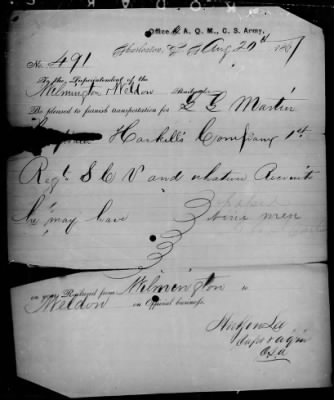 Office A. Q. M., C. S. Army,
Charleston, Aug 20th 186
No. 491
To the Superintendent of the
Wilmington & Weldon Railroad
Be pleased to furnish transportation for L L Martin
Haskell's Company 1st
Regt S C V and whatever Recruits
he may have
nine men
on your Railroad from Wilmington to
Weldon on Official business.
Hutson Lee
Capt & AQM
CSA